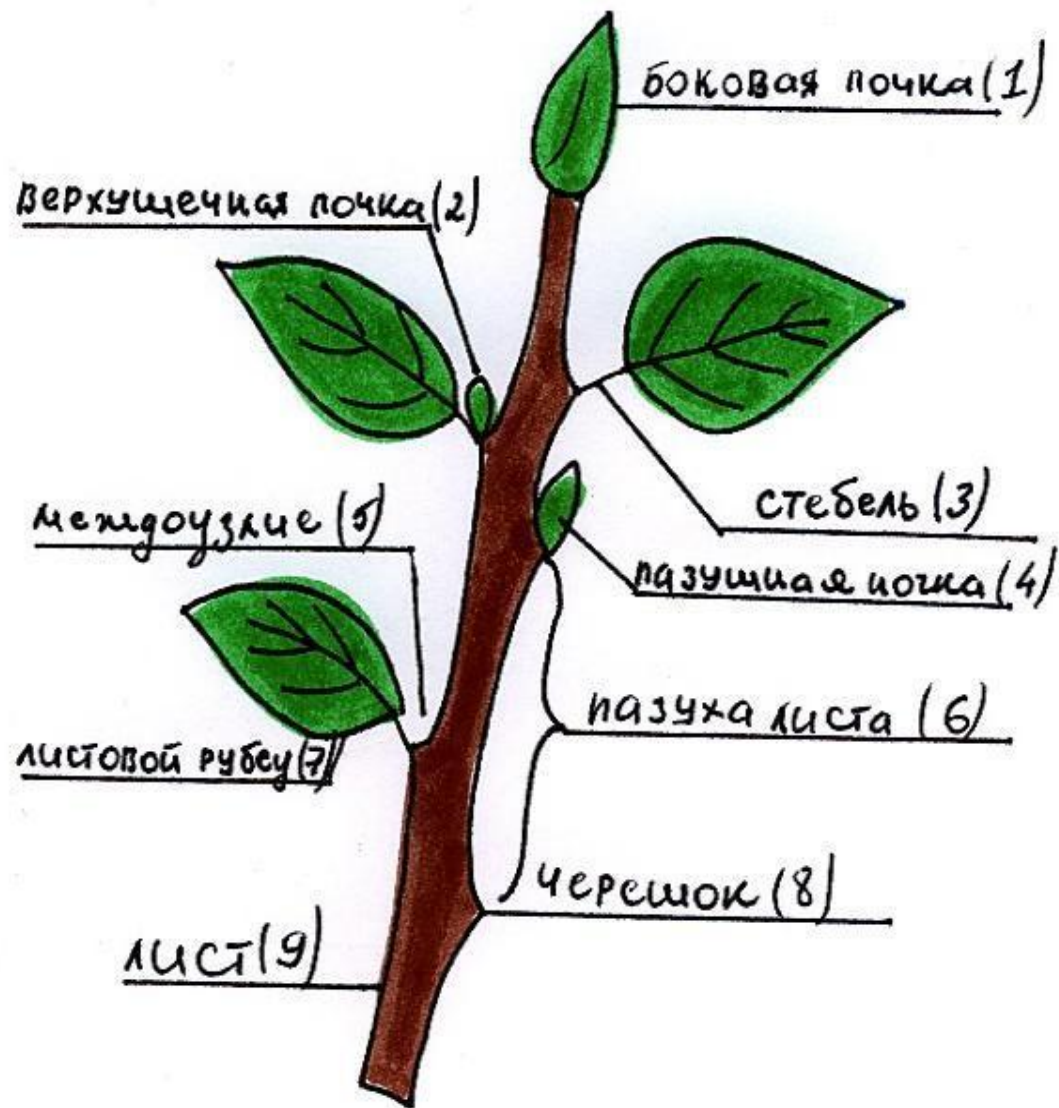 боковая почка (1)
верхушечная почка (2)
стебель (3)
междоузлие (5)
пазушная почка (4)
пазуха листа (6)
листовой рубец (7)
черешок (8)
лист (9)